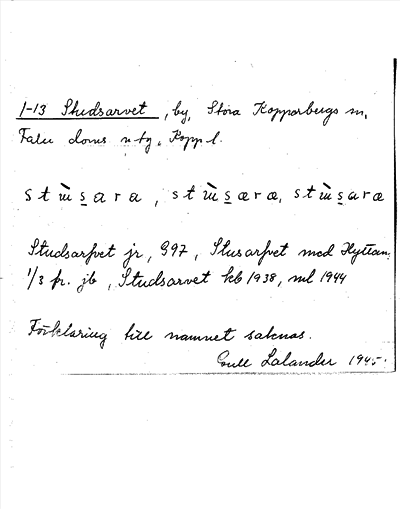 1-13 Studsarvet, by, Stora Kopparbergs sn,
Falu doms ntg, Kopp l.
st ɯ̀ s̲ a r a, st ɯ̀ s̲ æ r æ, st ɯ̀ s̲ a r æ
Studsarfvet jr, 997, Stusarfvet med Hyttan
1/3 fr. jb, Studsarvet kb 1938, ml 1944
Förklaring till namnet saknas.
Gull Lalander 1945.